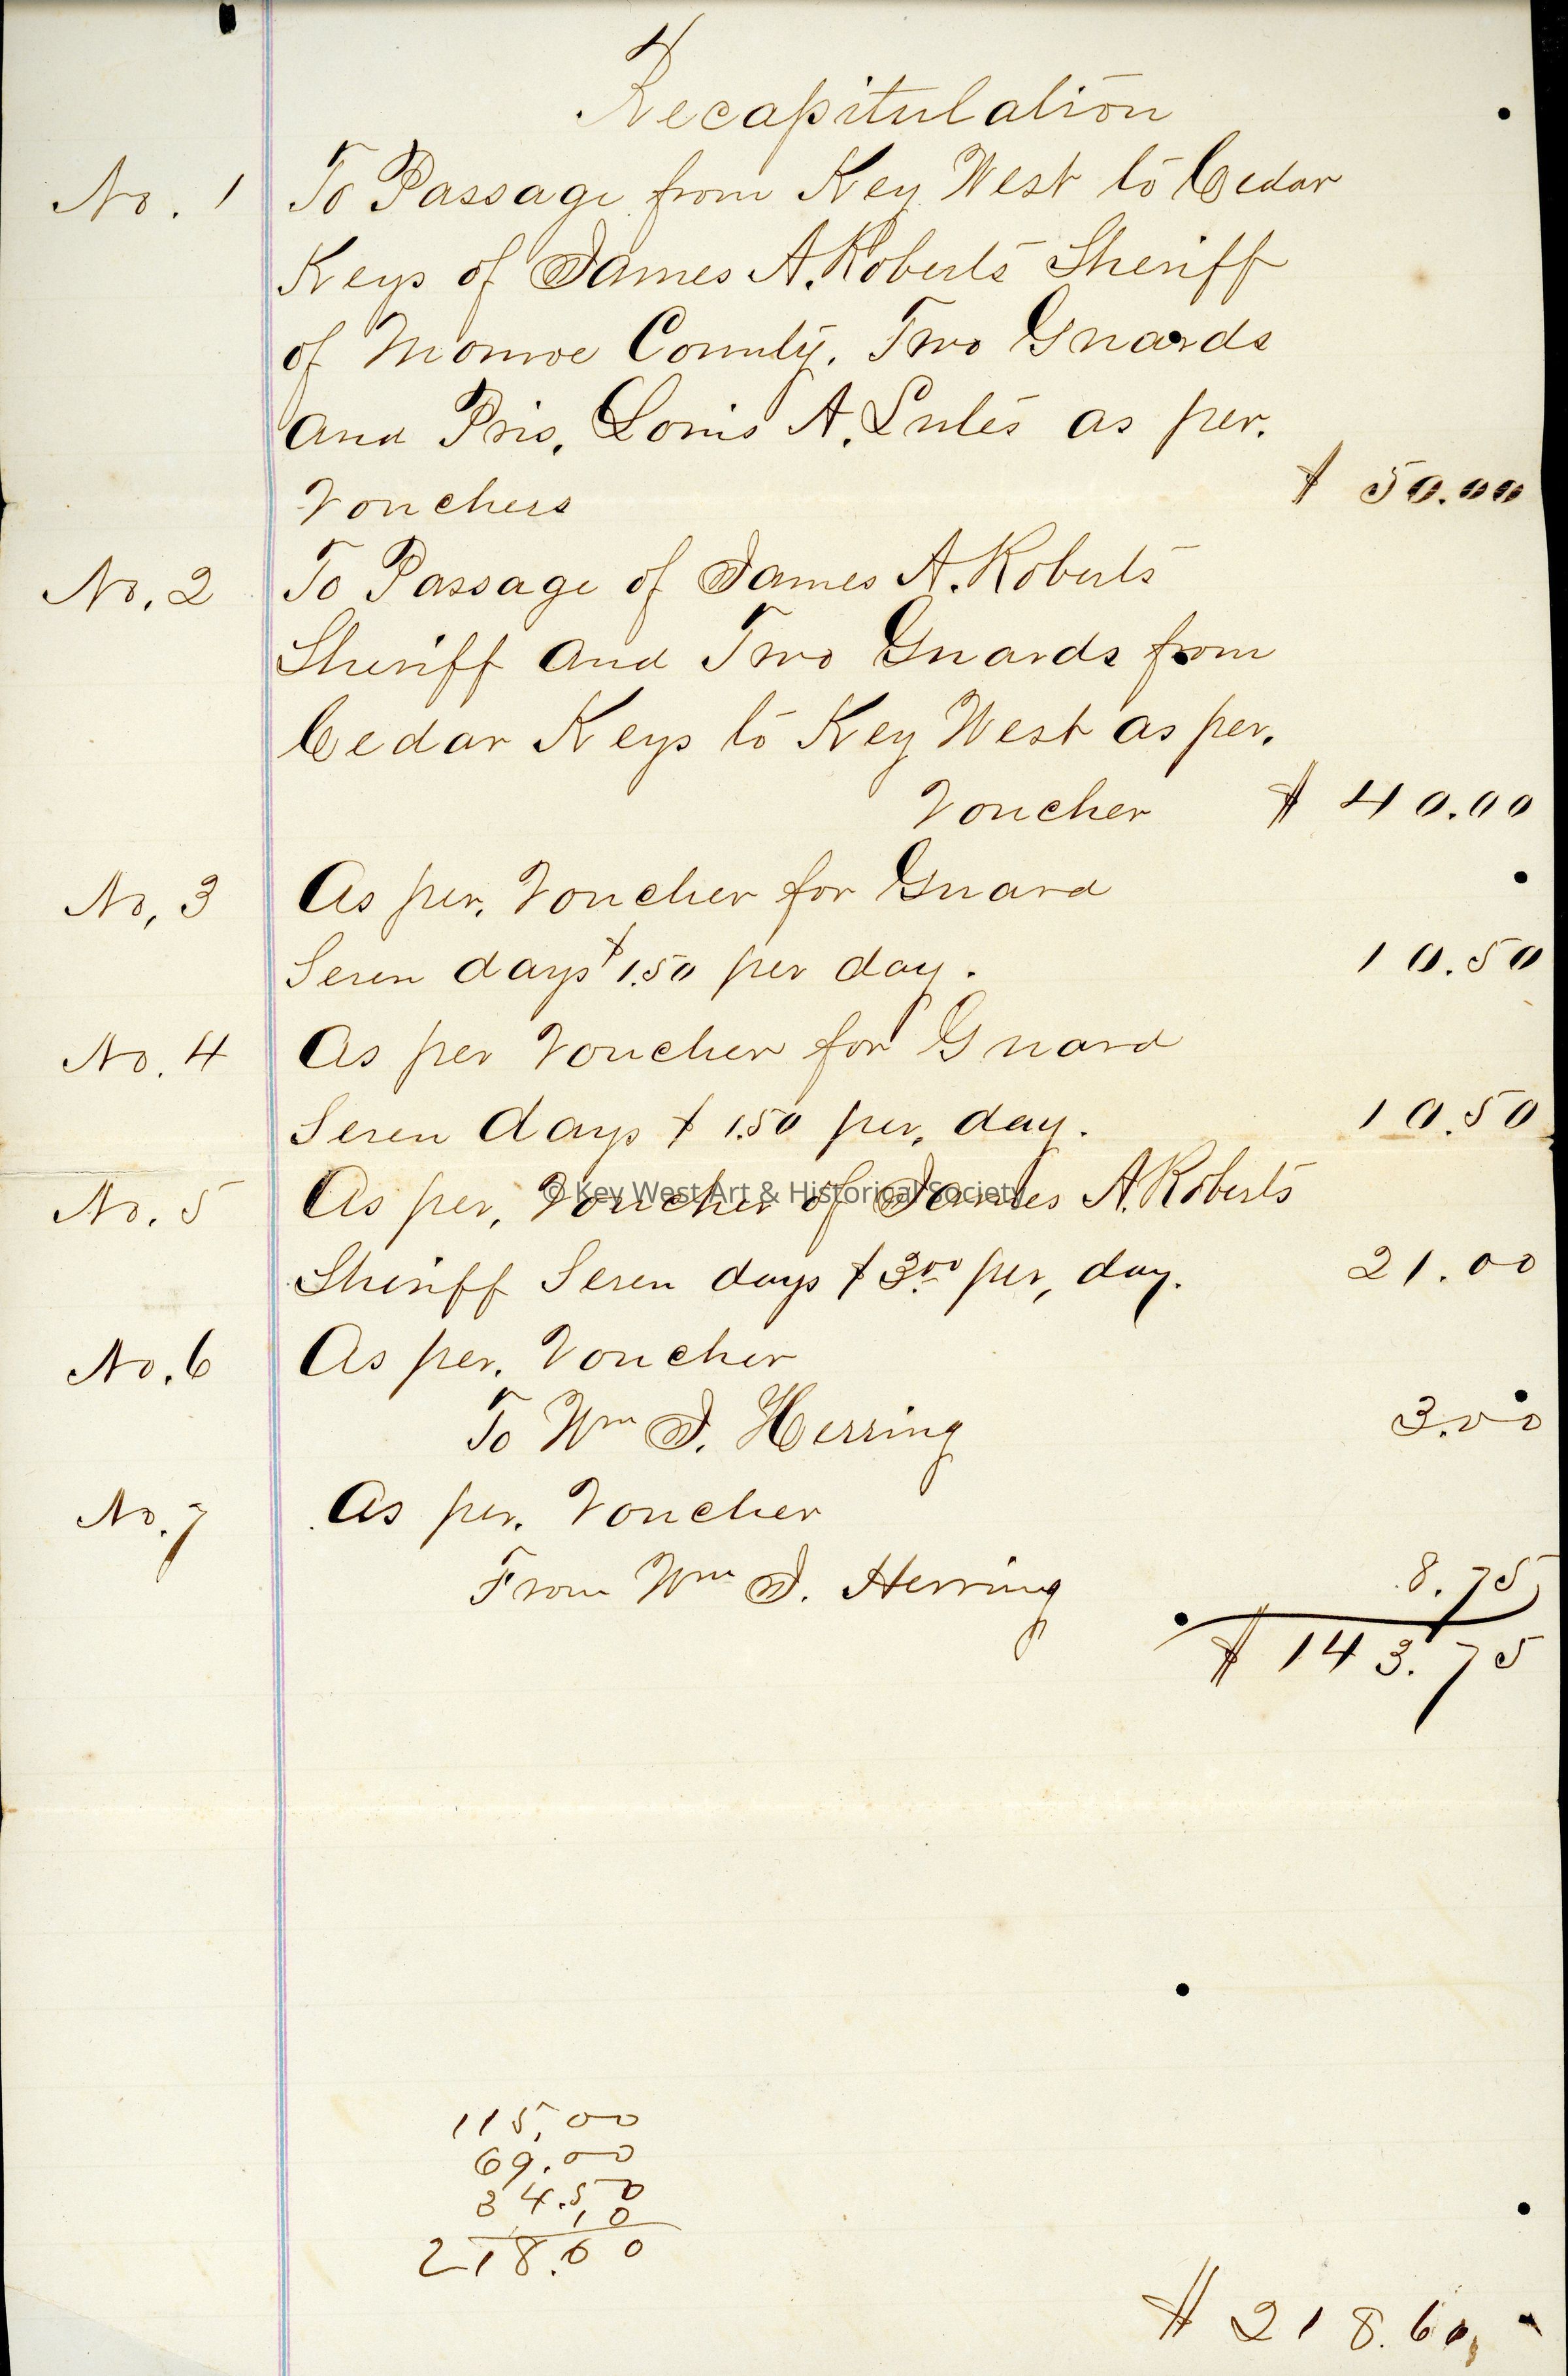 4
Recapitulation
No. 1 To Passage from Key West to Cedar
Keys of James A. Roberts Sheriff
of Monroe County. Two Guards
and Pris. Louis A. Lutes as per.
Vouchers $ 50.00
No. 2 To Passage of James A. Roberts
Sheriff and Two Guards from
Cedar Keys to Key West as per.
Voucher $ 40.00
No. 3 As per. Voucher for Guard
Seven days $1.50 per day. 10.50
No. 4 As per Voucher for Guard
Seven days $ 1.50 per. day. 10.50
No. 5 As per. Voucher of James A. Roberts
© Key West Art & Historical Society
Sheriff Seven days $ 3.00 per, day. 21.00
No. 6 As per. Voucher
To Wm J. Herring 3.00
No. 7 As per. Voucher
From Wm J. Herring 8.75
$ 143.75
115.00
69.00
34.50
.10
218.60
$ 218.60